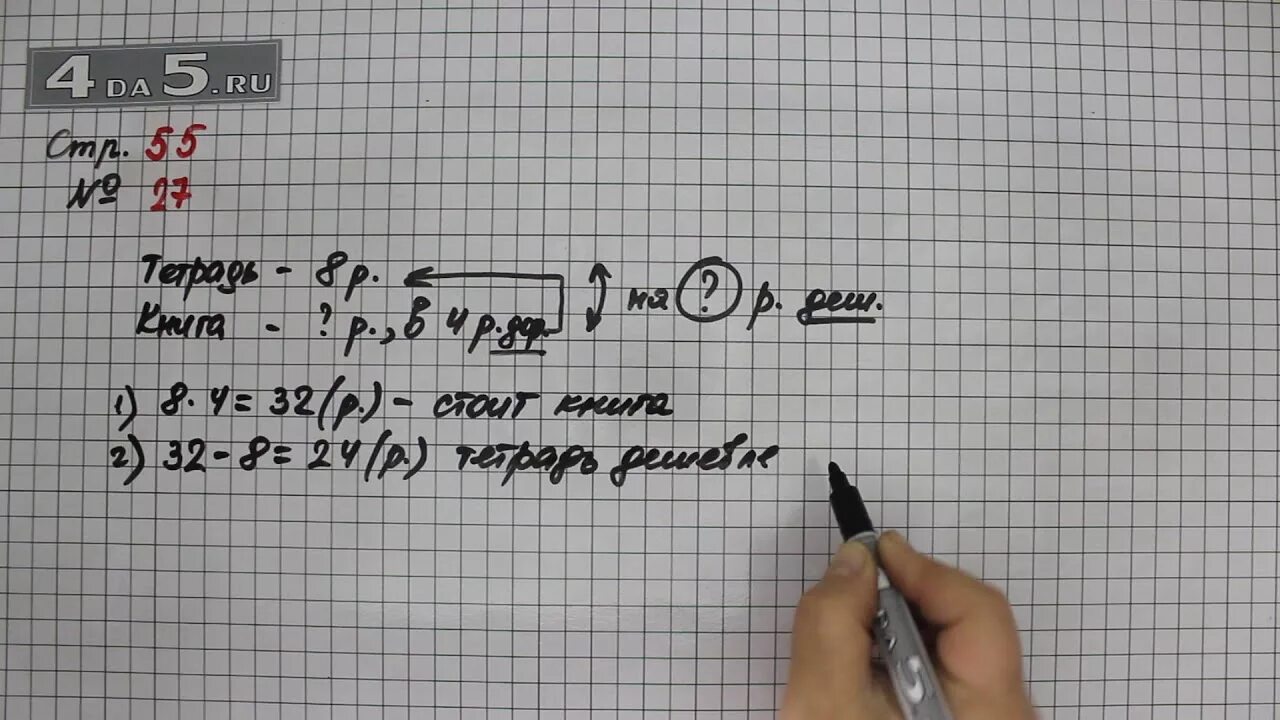 4DA5.RU
Стр. 55
№ 27
Тетрадь - 8 р.
Книга - ? р., в 4 р. дор.
на ? р. деш.
1) 8 · 4 = 32 (р.) - стоит книга
2) 32 - 8 = 24 (р.) тетрадь дешевле
DA 5